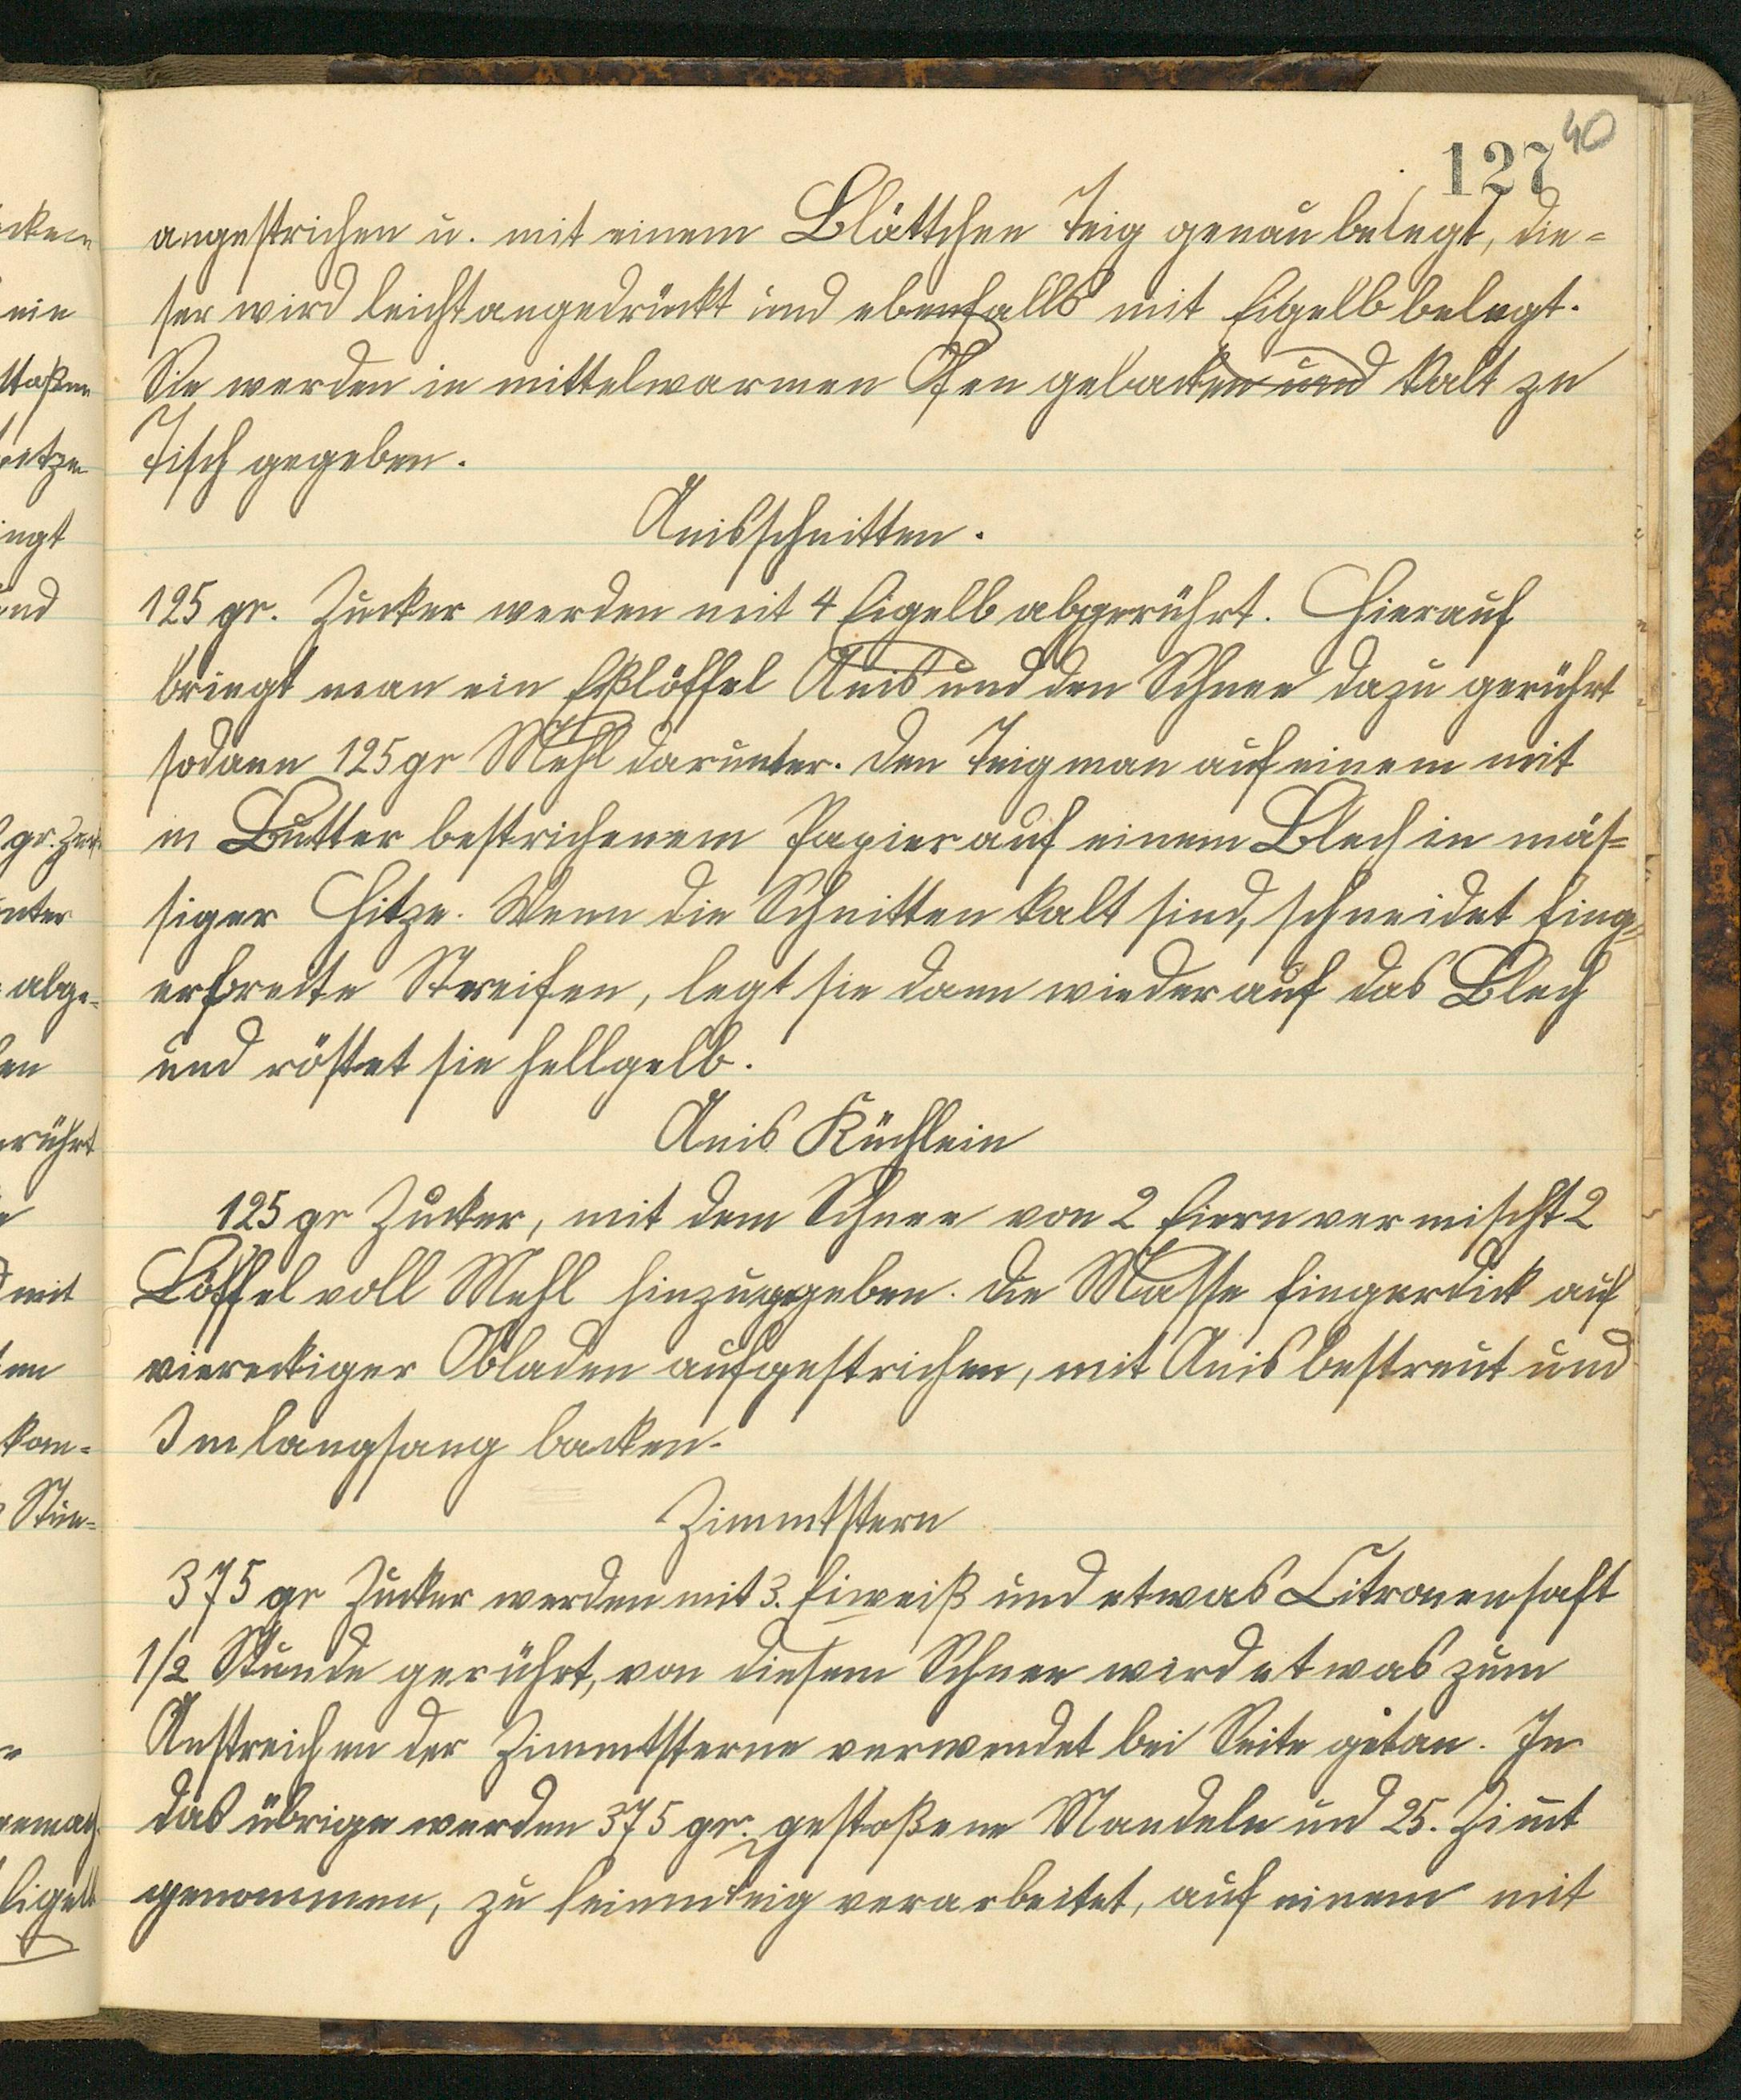 40
127
angestrichen u. mit einem Blättchen Teig genau belegt, die-
ser wird leicht angedrückt und ebenfalls mit Eigelb belegt.
Sie werden in mittelwarmen Ofen gebacken und kalt zu
Tisch gegeben.
Anisschnitten.
125 gr. Zucker werden mit 4 Eigelb abgerührt. Hierauf
bringt man ein Eßlöffel Anis und den Schnee dazu gerührt
sodann 125 gr Mehl darunter. Den Teig man auf einem mit
m Butter bestrichenem Papier auf einem Blech in mäs-
siger Hitze. Wenn die Schnitten kalt sind, schneidet fing-
erbreite Streifen, legt sie dann wieder auf das Blech
und röstet sie hellgelb.
Anis Küchlein
125 gr Zucker, mit dem Schnee von 2 Eiern vermischt 2
Löffel voll Mehl hinzugegeben. Die Masse fingerdick auf
viereckiger Obladen aufgestrichen, mit Anis bestreut und
Im langsang backen.
Zimmtstern
375 gr Zucker werden mit 3. Eiweiß und etwas Citronensaft
1/2 Stunde gerührt, von diesem Schnee wird etwas zum
Anstreichen der Zimmtsterne verwendet bei Seite getan. In
das übrige werden 375 gr. gestoßene Mandeln und 25. Zimt
genommen, zu feinmteig verarbeitet, auf einem mit